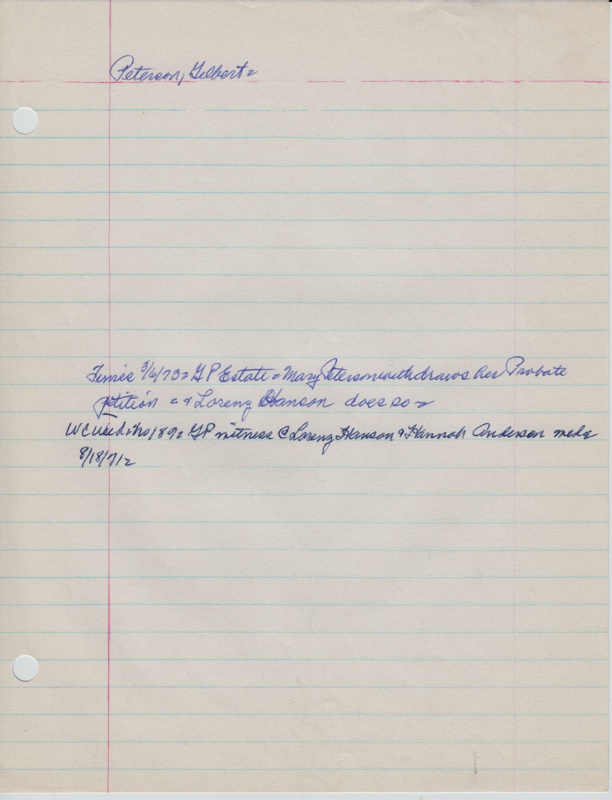 Peterson, Gilbert =
Times 3/6/73 = GP Estate = Mary Peterson withdraws her Probate
petition = + Lorenz Hanson does so =
WC 189 = GP witness @ Lorenz Hanson + Hannah Anderson
8/18/71 =